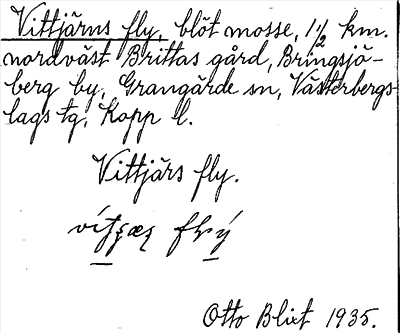 Vittjärns fly, blöt mosse, 1½ km.
nordväst Brittas gård, Bringsjö-
berg by, Grangärde sn, Västerbergs-
lags tg, Kopp l.
Vittjärs fly.
Otto Blixt 1935.